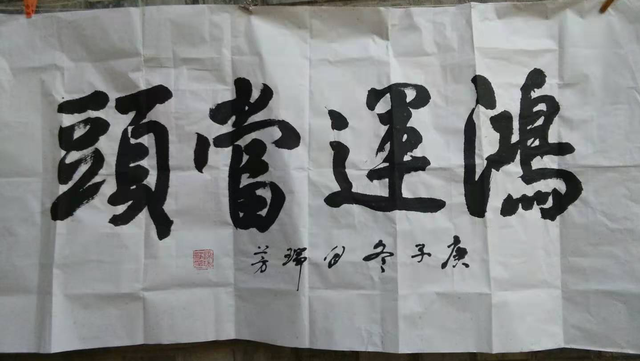 鴻運當頭
庚子冬白瑞芳